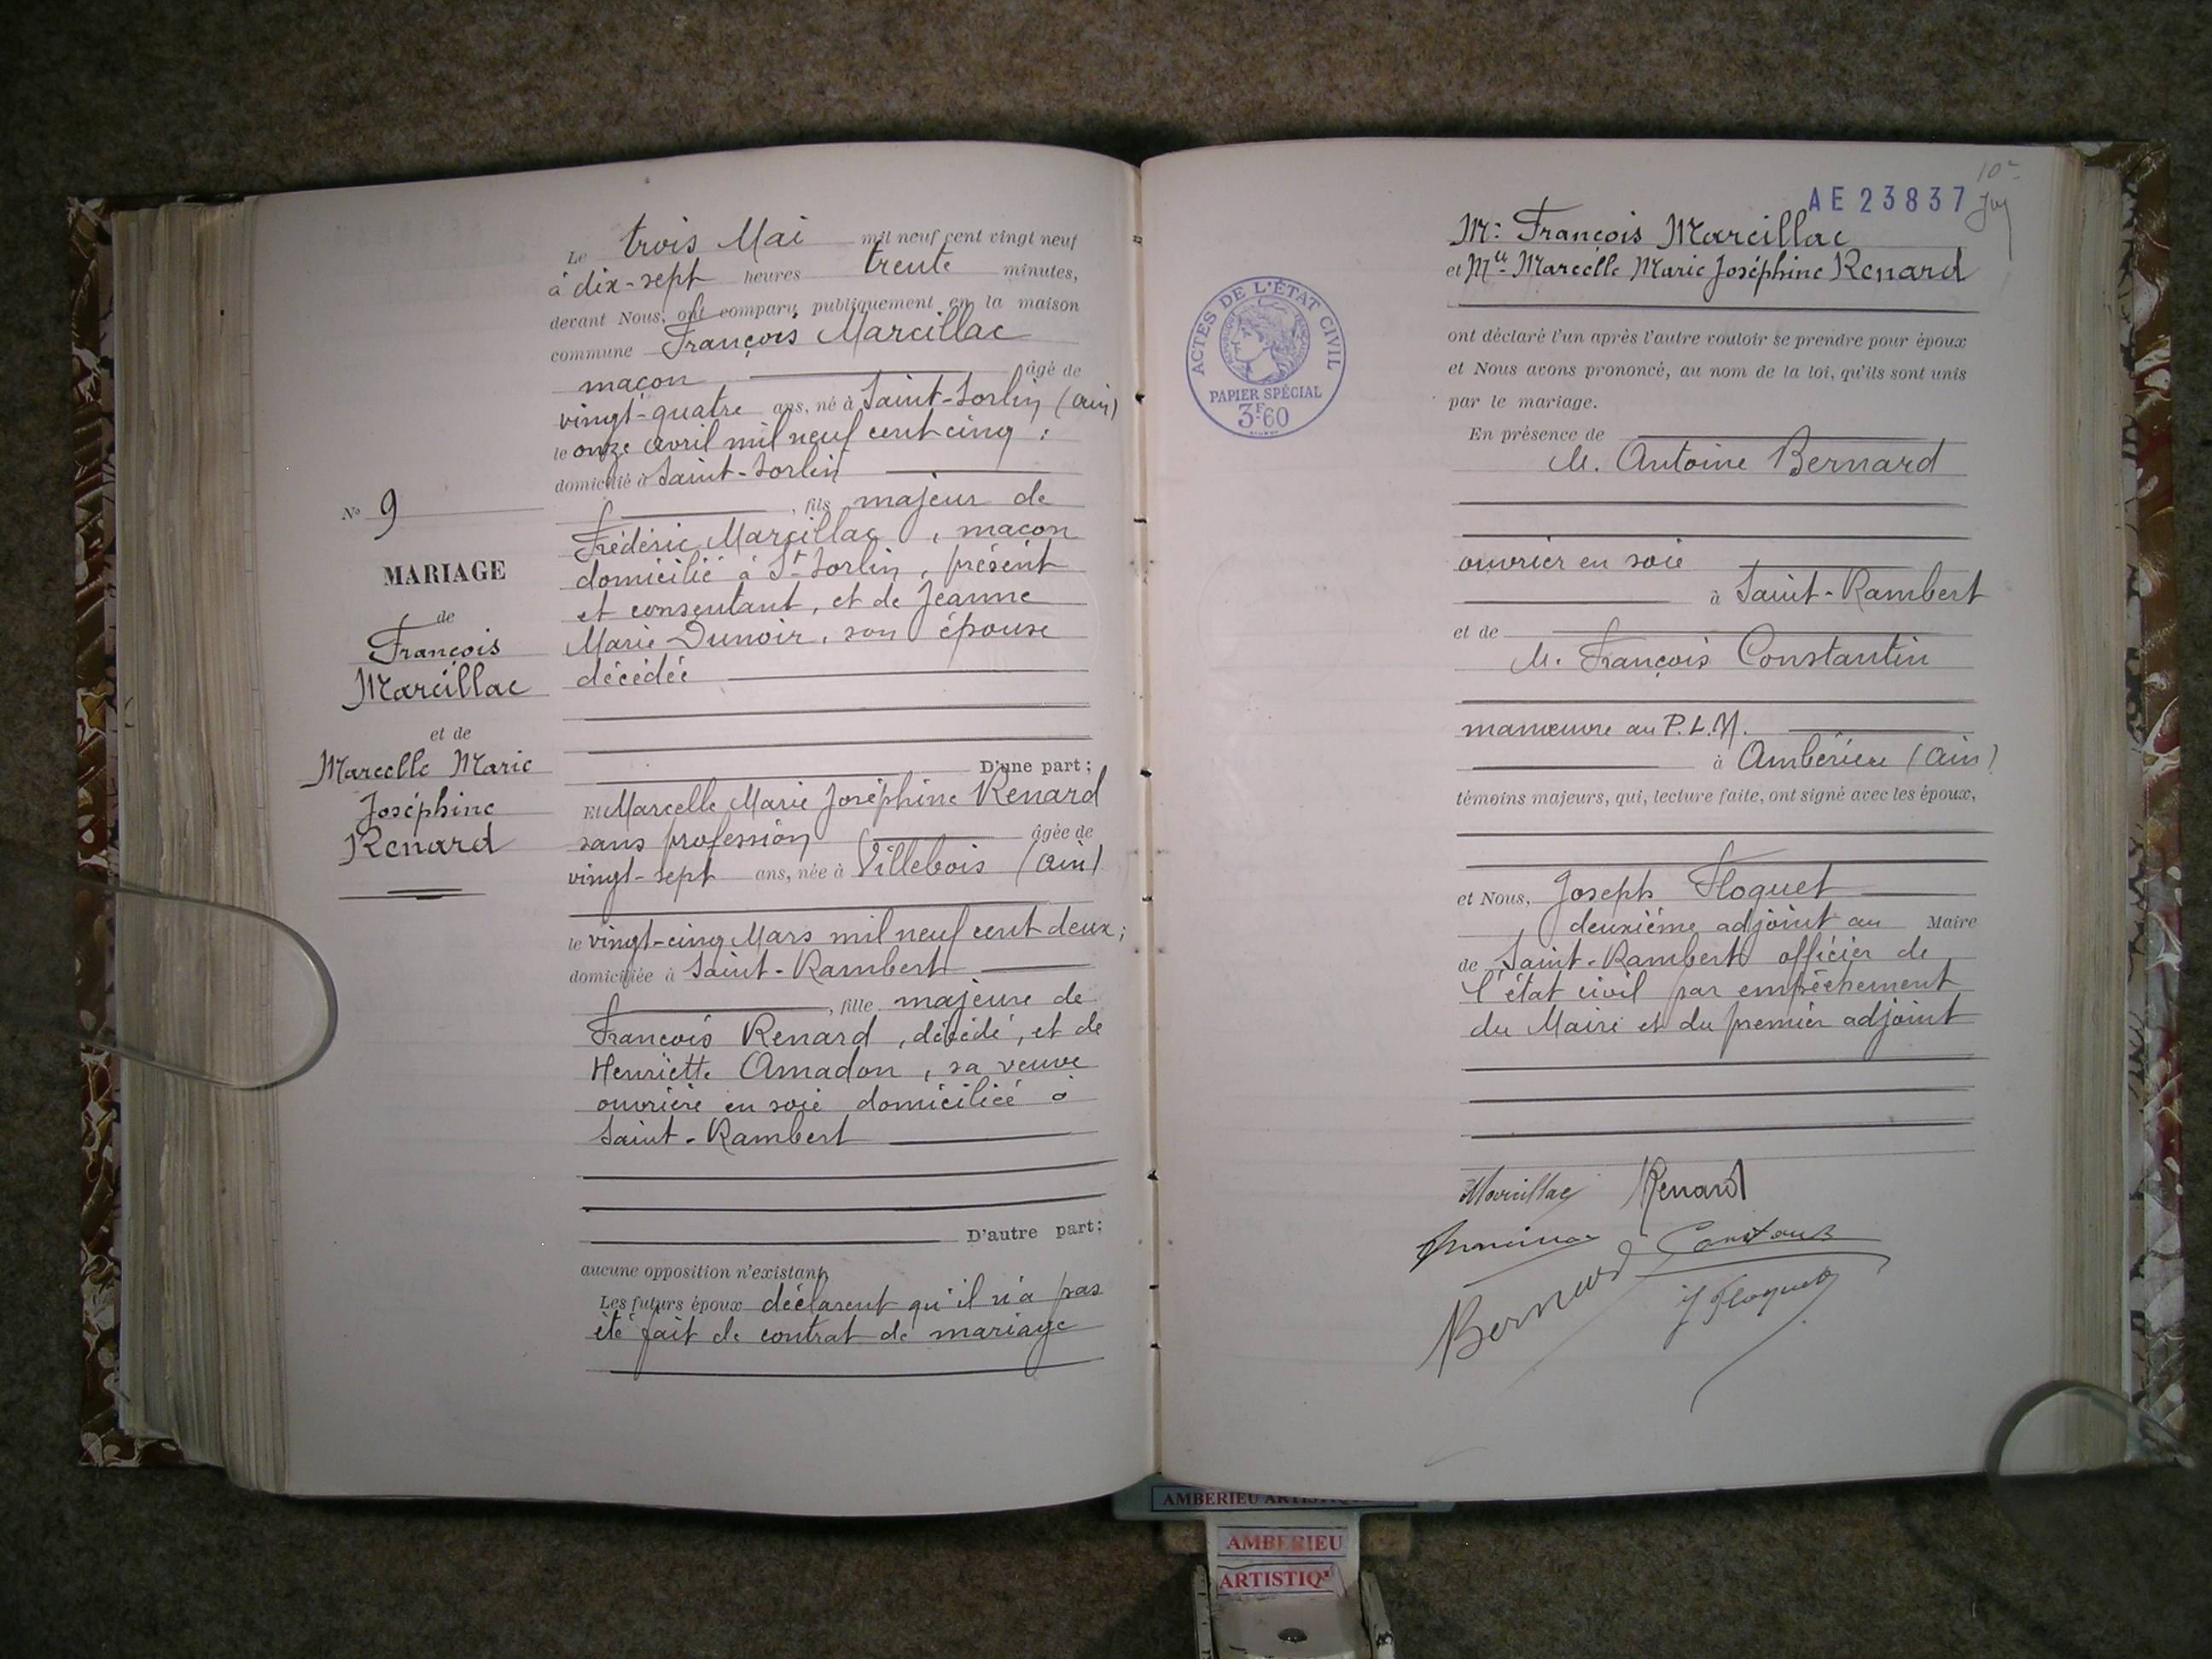 Le trois Mai mil neuf cent vingt neuf
à dix-sept heures trente minutes,
devant Nous, ont comparu publiquement en la maison
commune François Marcillac
maçon âgé de
vingt-quatre ans, né à Saint-Sorlin (Ain)
le onze avril mil neuf cent cinq ;
domicilié à Saint-Sorlin
, fils majeur de
Frédéric Marcillac, maçon
domicilié à St Sorlin, présent
et consentant, et de Jeanne
Marie Dunoir, son épouse
décédée
D'une part ;
Et Marcelle Marie Joséphine Renard
sans profession âgée de
vingt-sept ans, née à Villebois (Ain)
le vingt-cinq Mars mil neuf cent deux ;
domiciliée à Saint-Rambert
, fille majeure de
François Renard, décédé, et de
Henriette Amadon, sa veuve
ouvrière en soie domiciliée à
Saint-Rambert
D'autre part ;
aucune opposition n'existant
Les futurs époux déclarent qu'il n'a pas
été fait de contrat de mariage
No 9
MARIAGE
de
François
Marcillac
et de
Marcelle Marie
Joséphine
Renard
10e
AE 23837
Mr François Marcillac
et Mlle Marcelle Marie Joséphine Renard
ACTES DE L'ÉTAT CIVIL
RÉPUBLIQUE FRANÇAISE
PAPIER SPÉCIAL
3F60
ont déclaré l'un après l'autre vouloir se prendre pour époux
et Nous avons prononcé, au nom de la loi, qu'ils sont unis
par le mariage.
En présence de
M. Antoine Bernard
ouvrier en soie
à Saint-Rambert
et de
M. François Constantin
manœuvre au P.L.M.
à Ambérieu (Ain)
témoins majeurs, qui, lecture faite, ont signé avec les époux,
et Nous, Joseph Floquet
deuxième adjoint au Maire
de Saint-Rambert officier de
l'état civil par empêchement
du Maire et du premier adjoint
Marcillac Renard
Bernard
J Floquet
AMBERIEU
AMBERIEU
ARTISTIQ